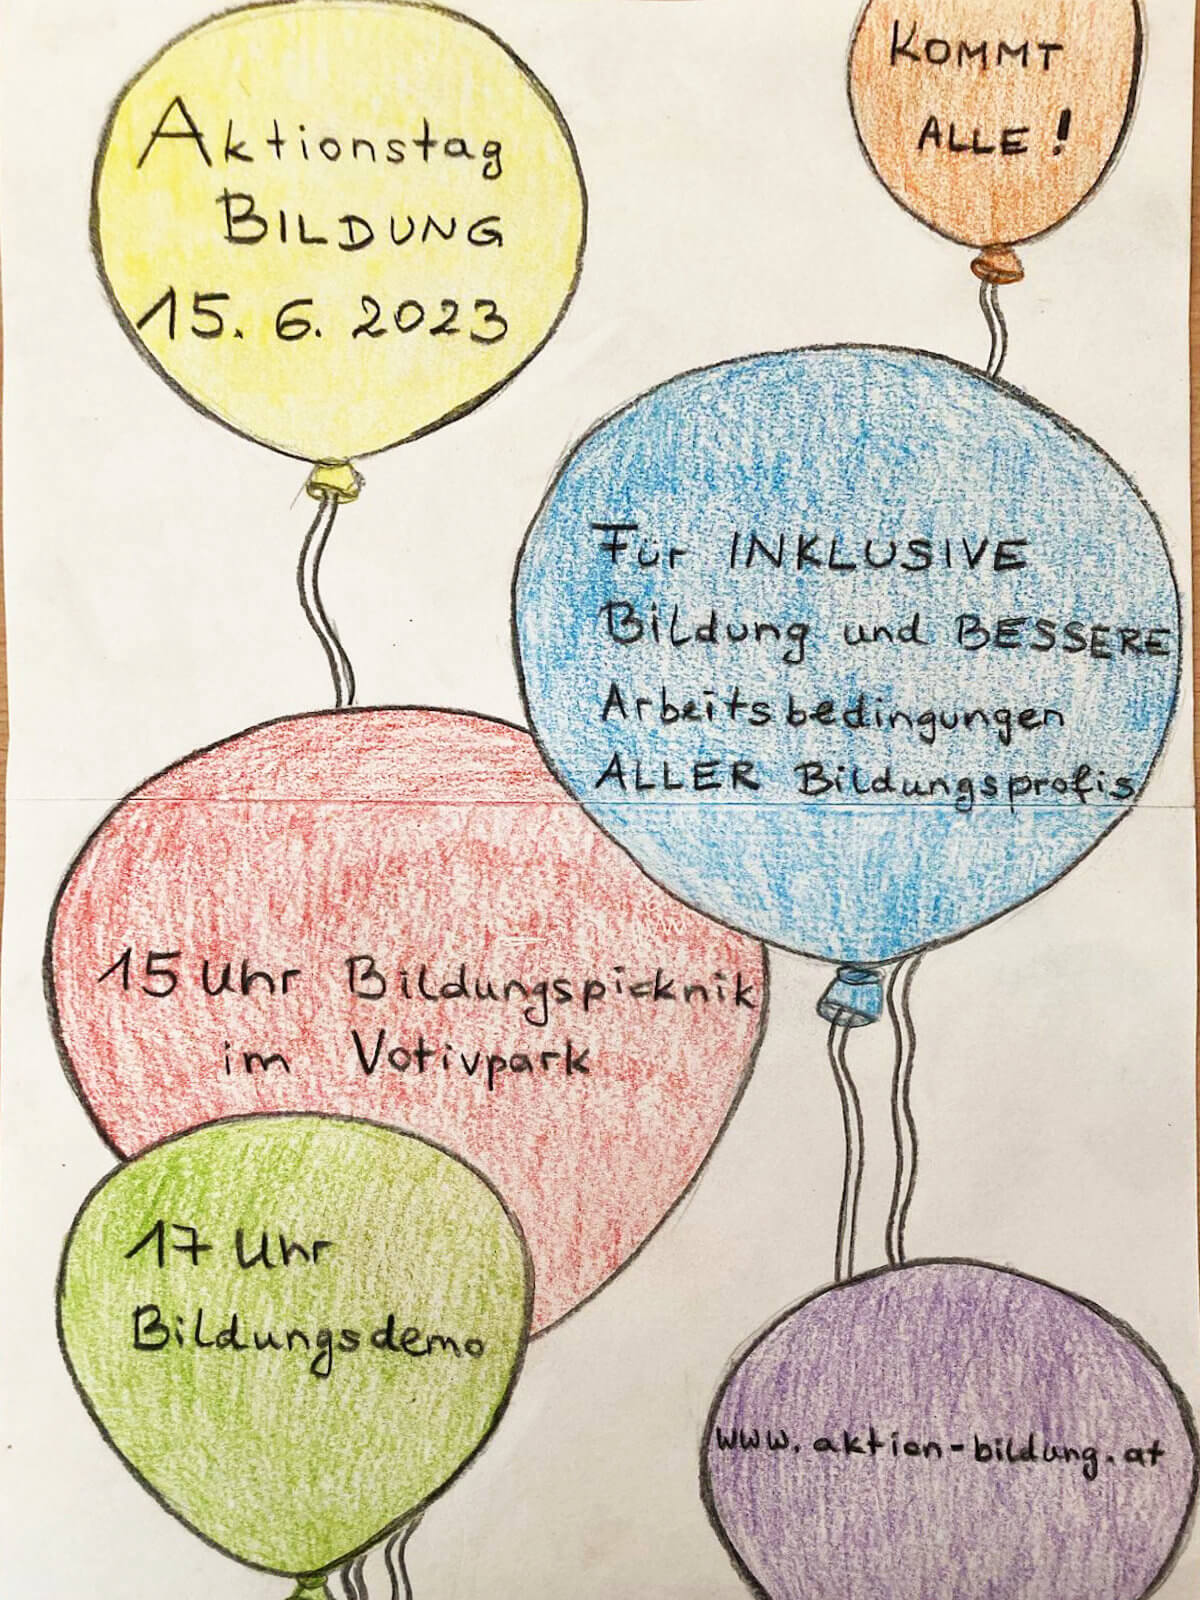 Aktionstag
BILDUNG
15. 6. 2023
KOMMT
ALLE!
Für INKLUSIVE
Bildung und BESSERE
Arbeitsbedingungen
ALLER Bildungsprofis
15 Uhr Bildungspicknik
im Votivpark
17 Uhr
Bildungsdemo
www.aktion-bildung.at